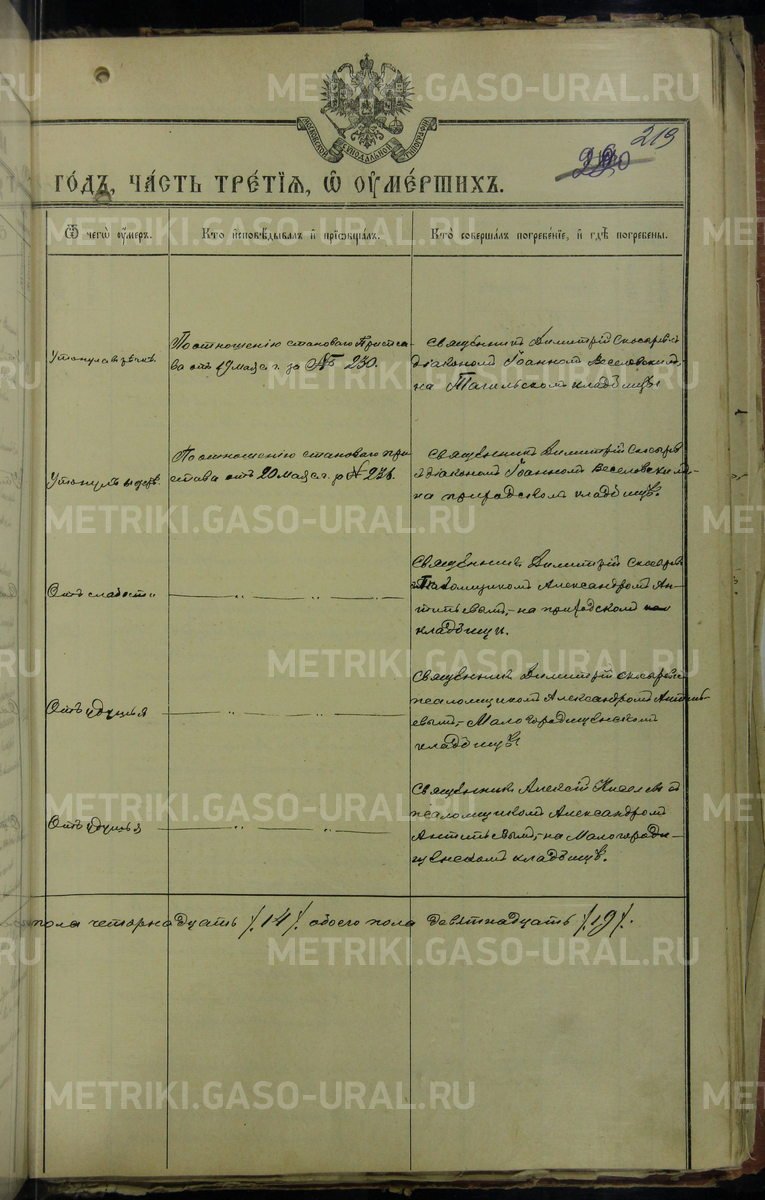 МОСКОВСКОЙ СѴНОДАЛЬНОЙ ТИПОГРАФІИ
219
220
ГО́ДЪ, ЧА́СТЬ ТРЕ́ТІѦ, Ѡ ОУМЕ́РШИХЪ.
Ѿ чегѡ̀ оу́меръ.
Кто̀ и҆сповѣ́дывалъ и҆ прїѡбща́лъ.
Кто̀ соверша́лъ погребе́нїе, и҆ гдѣ̀ погребены̀.
Утонула в рѣчкѣ
По отношенію становаго Приста-
ва отъ 19 мая с. г. за № 230.
Священникъ Димитрій Скосыревъ съ
діакономъ Іоанномъ Веселовскимъ,
на Тагильскомъ кладбищѣ
Утонулъ
По отношенію становаго при
става отъ 20 мая с. г. за № 236.
Священникъ Димитрій Скосыревъ
съ діакономъ Іоанномъ Веселовскимъ-
на кладбищѣ.
Отъ слабости
Священникъ Димитрій Скосыревъ
Псаломщикомъ Александромъ Ан-
типьевымъ,- на
кладбищѣ.
Отъ удушья
Священникъ Димитрій Скосыревъ съ
псаломщикомъ Александромъ Антипь-
евымъ,- Малогородищенскомъ
кладбищѣ
Отъ удушья
Священникъ Алексій Киселевъ съ
псаломщикомъ Александромъ
Антипьевымъ,- на Малогороди-
щенскомъ кладбищѣ.
пола четорнадцать /. 14 /. обоего пола девятнадцать /. 19 /.
METRIKI.GASO-URAL.RU